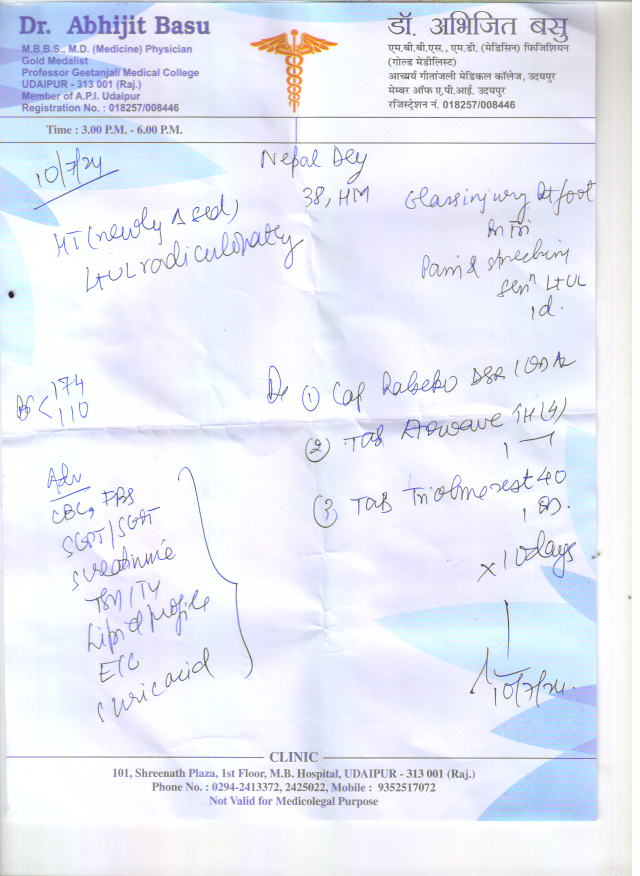 Dr. Abhijit Basu
M.B.B.S., M.D. (Medicine) Physician
Gold Medalist
Professor Geetanjali Medical College
UDAIPUR - 313 001 (Raj.)
Member of A.P.I. Udaipur
Registration No. : 018257/008446
डॉ. अभिजित बसु
एम.बी.बी.एस., एम.डी. (मेडिसिन) फिजिशियन
(गोल्ड मेडीलिस्ट)
आचार्य गीतांजली मेडिकल कॉलेज, उदयपुर
मेम्बर ऑफ ए.पी.आई. उदयपुर
रजिस्ट्रेशन नं. 018257/008446
Time : 3.00 P.M. - 6.00 P.M.
10/7/24
Nepal Dey
38, HM
HT (newly
Lt UL radiculopathy
Glass injury foot
Pain &
Lt UL
1d.
174
110
① Cap DSR
② Tab TH (4)
③ Tab 40
1 OD.
x 10 days
Adv
CBC, FBS
SGPT/SGOT
S creatinine
Lipid profile
ECG
S uric acid
10/7/24.
CLINIC
101, Shreenath Plaza, 1st Floor, M.B. Hospital, UDAIPUR - 313 001 (Raj.)
Phone No. : 0294-2413372, 2425022, Mobile : 9352517072
Not Valid for Medicolegal Purpose